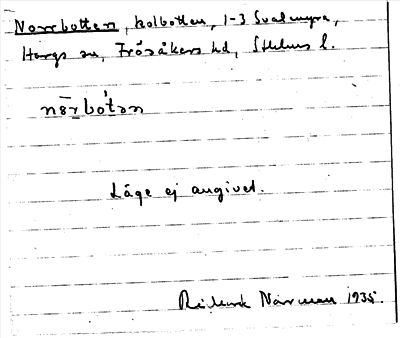 Norrbotten, kolbotten, 1-3 Svalmyra,
Hargs sn, Frösåkers hd, Sthlms l.
nørbòtən
Läge ej angivet.
Rickard Närman 1935.